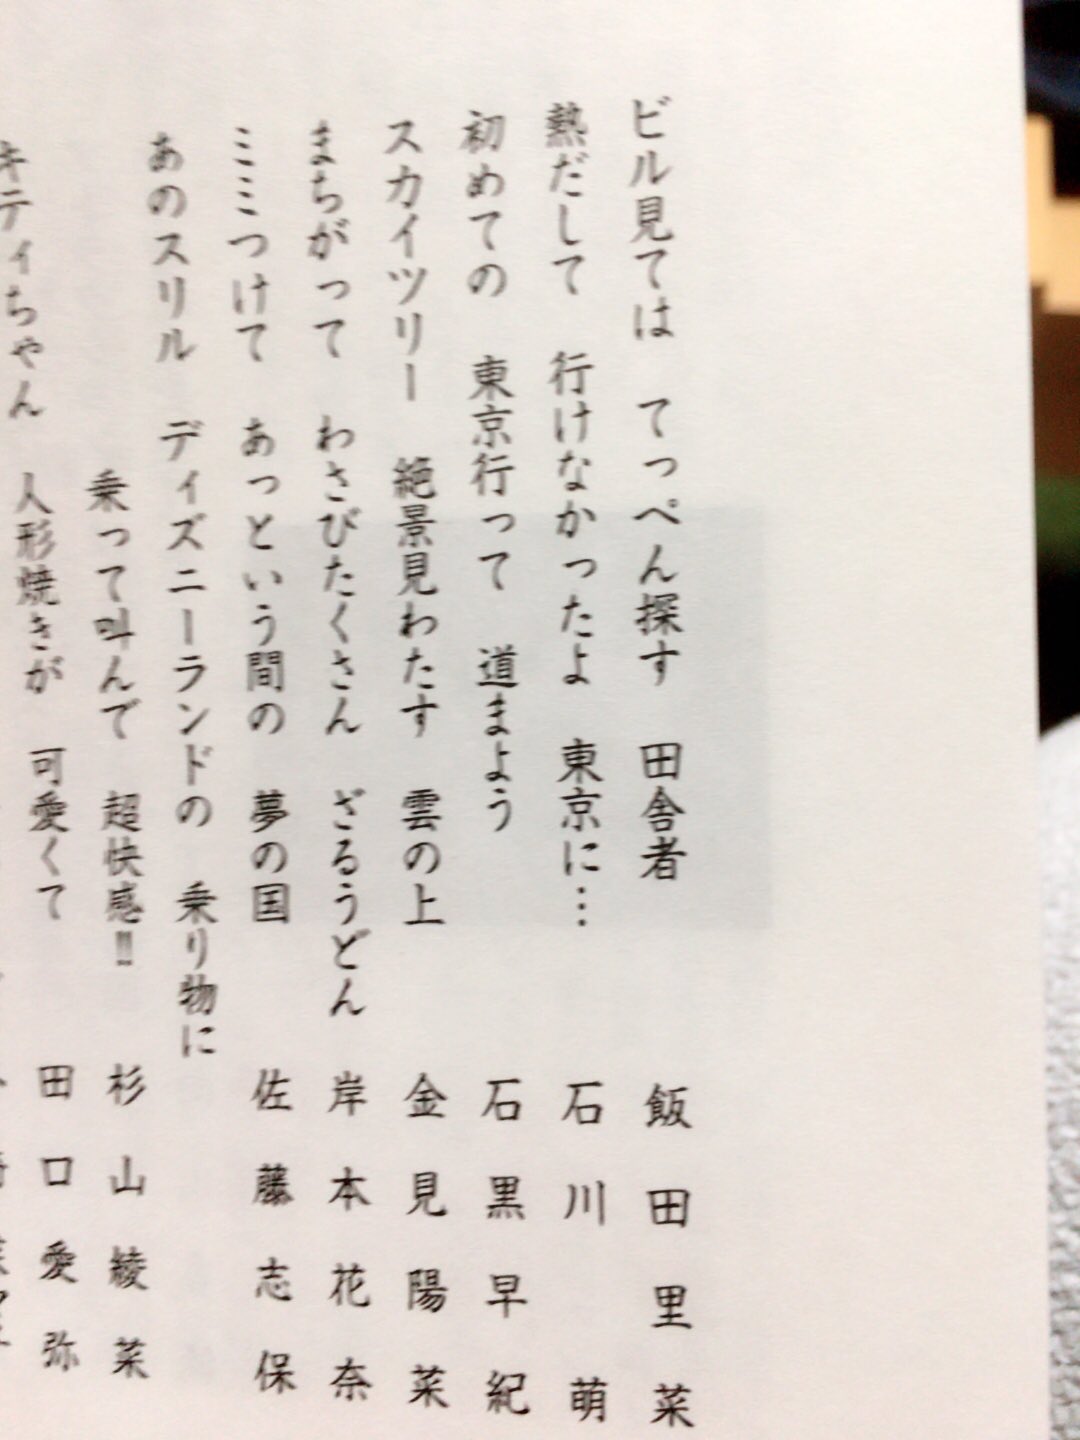 ビル見ては てっぺん探す 田舎者 飯田里菜
熱だして 行けなかったよ 東京に… 石川 萌
初めての 東京行って 道まよう 石黒早紀
スカイツリー 絶景見わたす 雲の上 金見陽菜
まちがって わさびたくさん ざるうどん 岸本花奈
ミミつけて あっという間の 夢の国 佐藤志保
あのスリル ディズニーランドの 乗り物に
乗って叫んで 超快感!! 杉山綾菜
キティちゃん 人形焼きが 可愛くて 田口愛弥